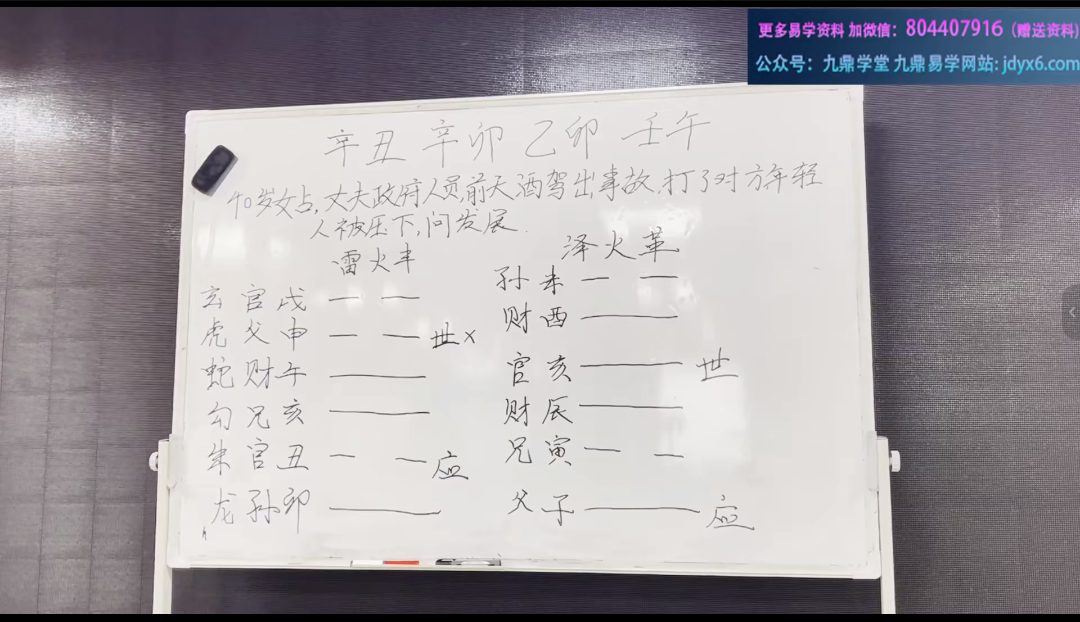 更多易学资料 加微信：804407916（赠送资料）
公众号：九鼎学堂 九鼎易学网站: jdyx6.com
辛丑 辛卯 乙卯 壬午
40岁女占，丈夫政府人员，前天酒驾出事故，打了对方年轻
人被压下，问发展.
雷火丰 泽火革
玄 官 戌 孙 未
虎 父 申 世 × 财 酉
蛇 财 午 官 亥 世
勾 兄 亥 财 辰
朱 官 丑 应 兄 寅
龙 孙 卯 父 子 应